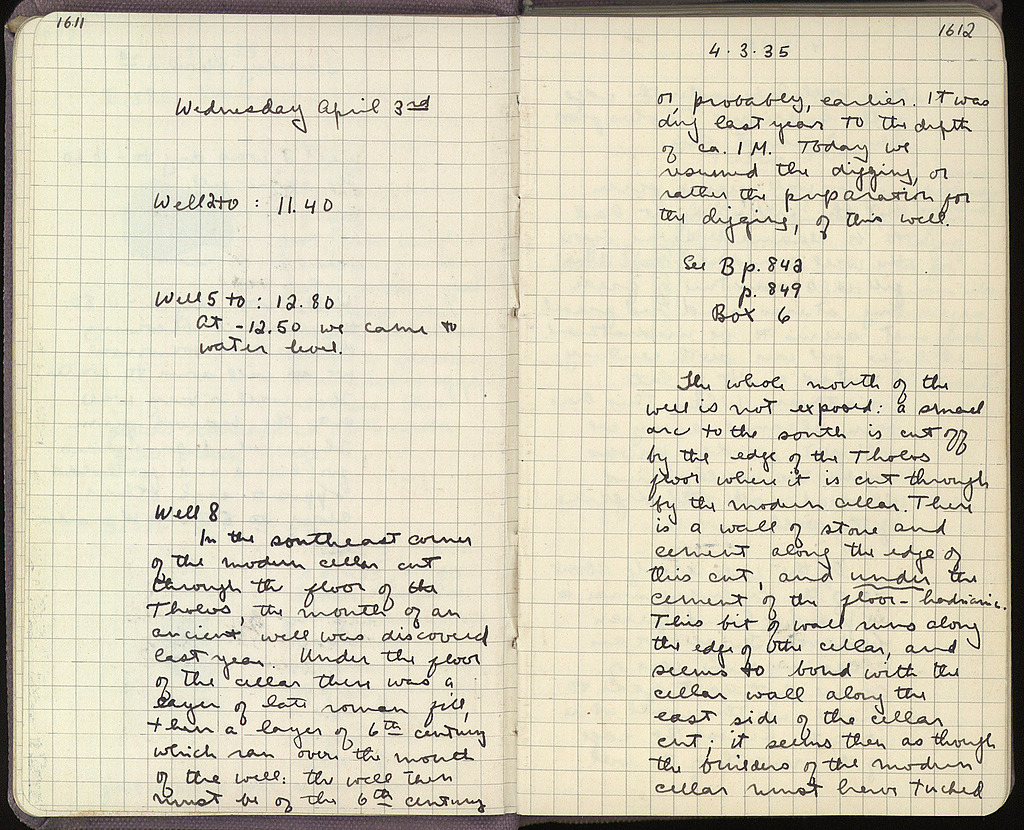 1611
Wednesday April 3rd
Well 2 to : 11.40
Well 5 to : 12.80
At -12.50 we came to
water level.
Well 8
In the southeast corner
of the modern cellar cut
through the floor of the
Tholos, the mouth of an
ancient well was discovered
last year. Under the floor
of the cellar there was a
layer of late roman fill,
then a layer of 6th century
which ran over the mouth
of the well: the well then
must be of the 6th century
1612
4.3.35
or, probably, earlier. It was
dug last year to the depth
of ca. 1 M. Today we
resumed the digging, or
rather the preparation for
the digging, of this well.
See B p. 842
p. 849
Box 6
The whole mouth of the
well is not exposed: a small
arc to the south is cut off
by the edge of the Tholos
floor where it is cut through
by the modern cellar. There
is a wall of stone and
cement along the edge of
this cut, and under the
cement of the floor - hadrianic.
This bit of wall runs along
the edge of the cellar, and
seems to bond with the
cellar wall along the
east side of the cellar
cut; it seems then as though
the builders of the modern
cellar must have tucked